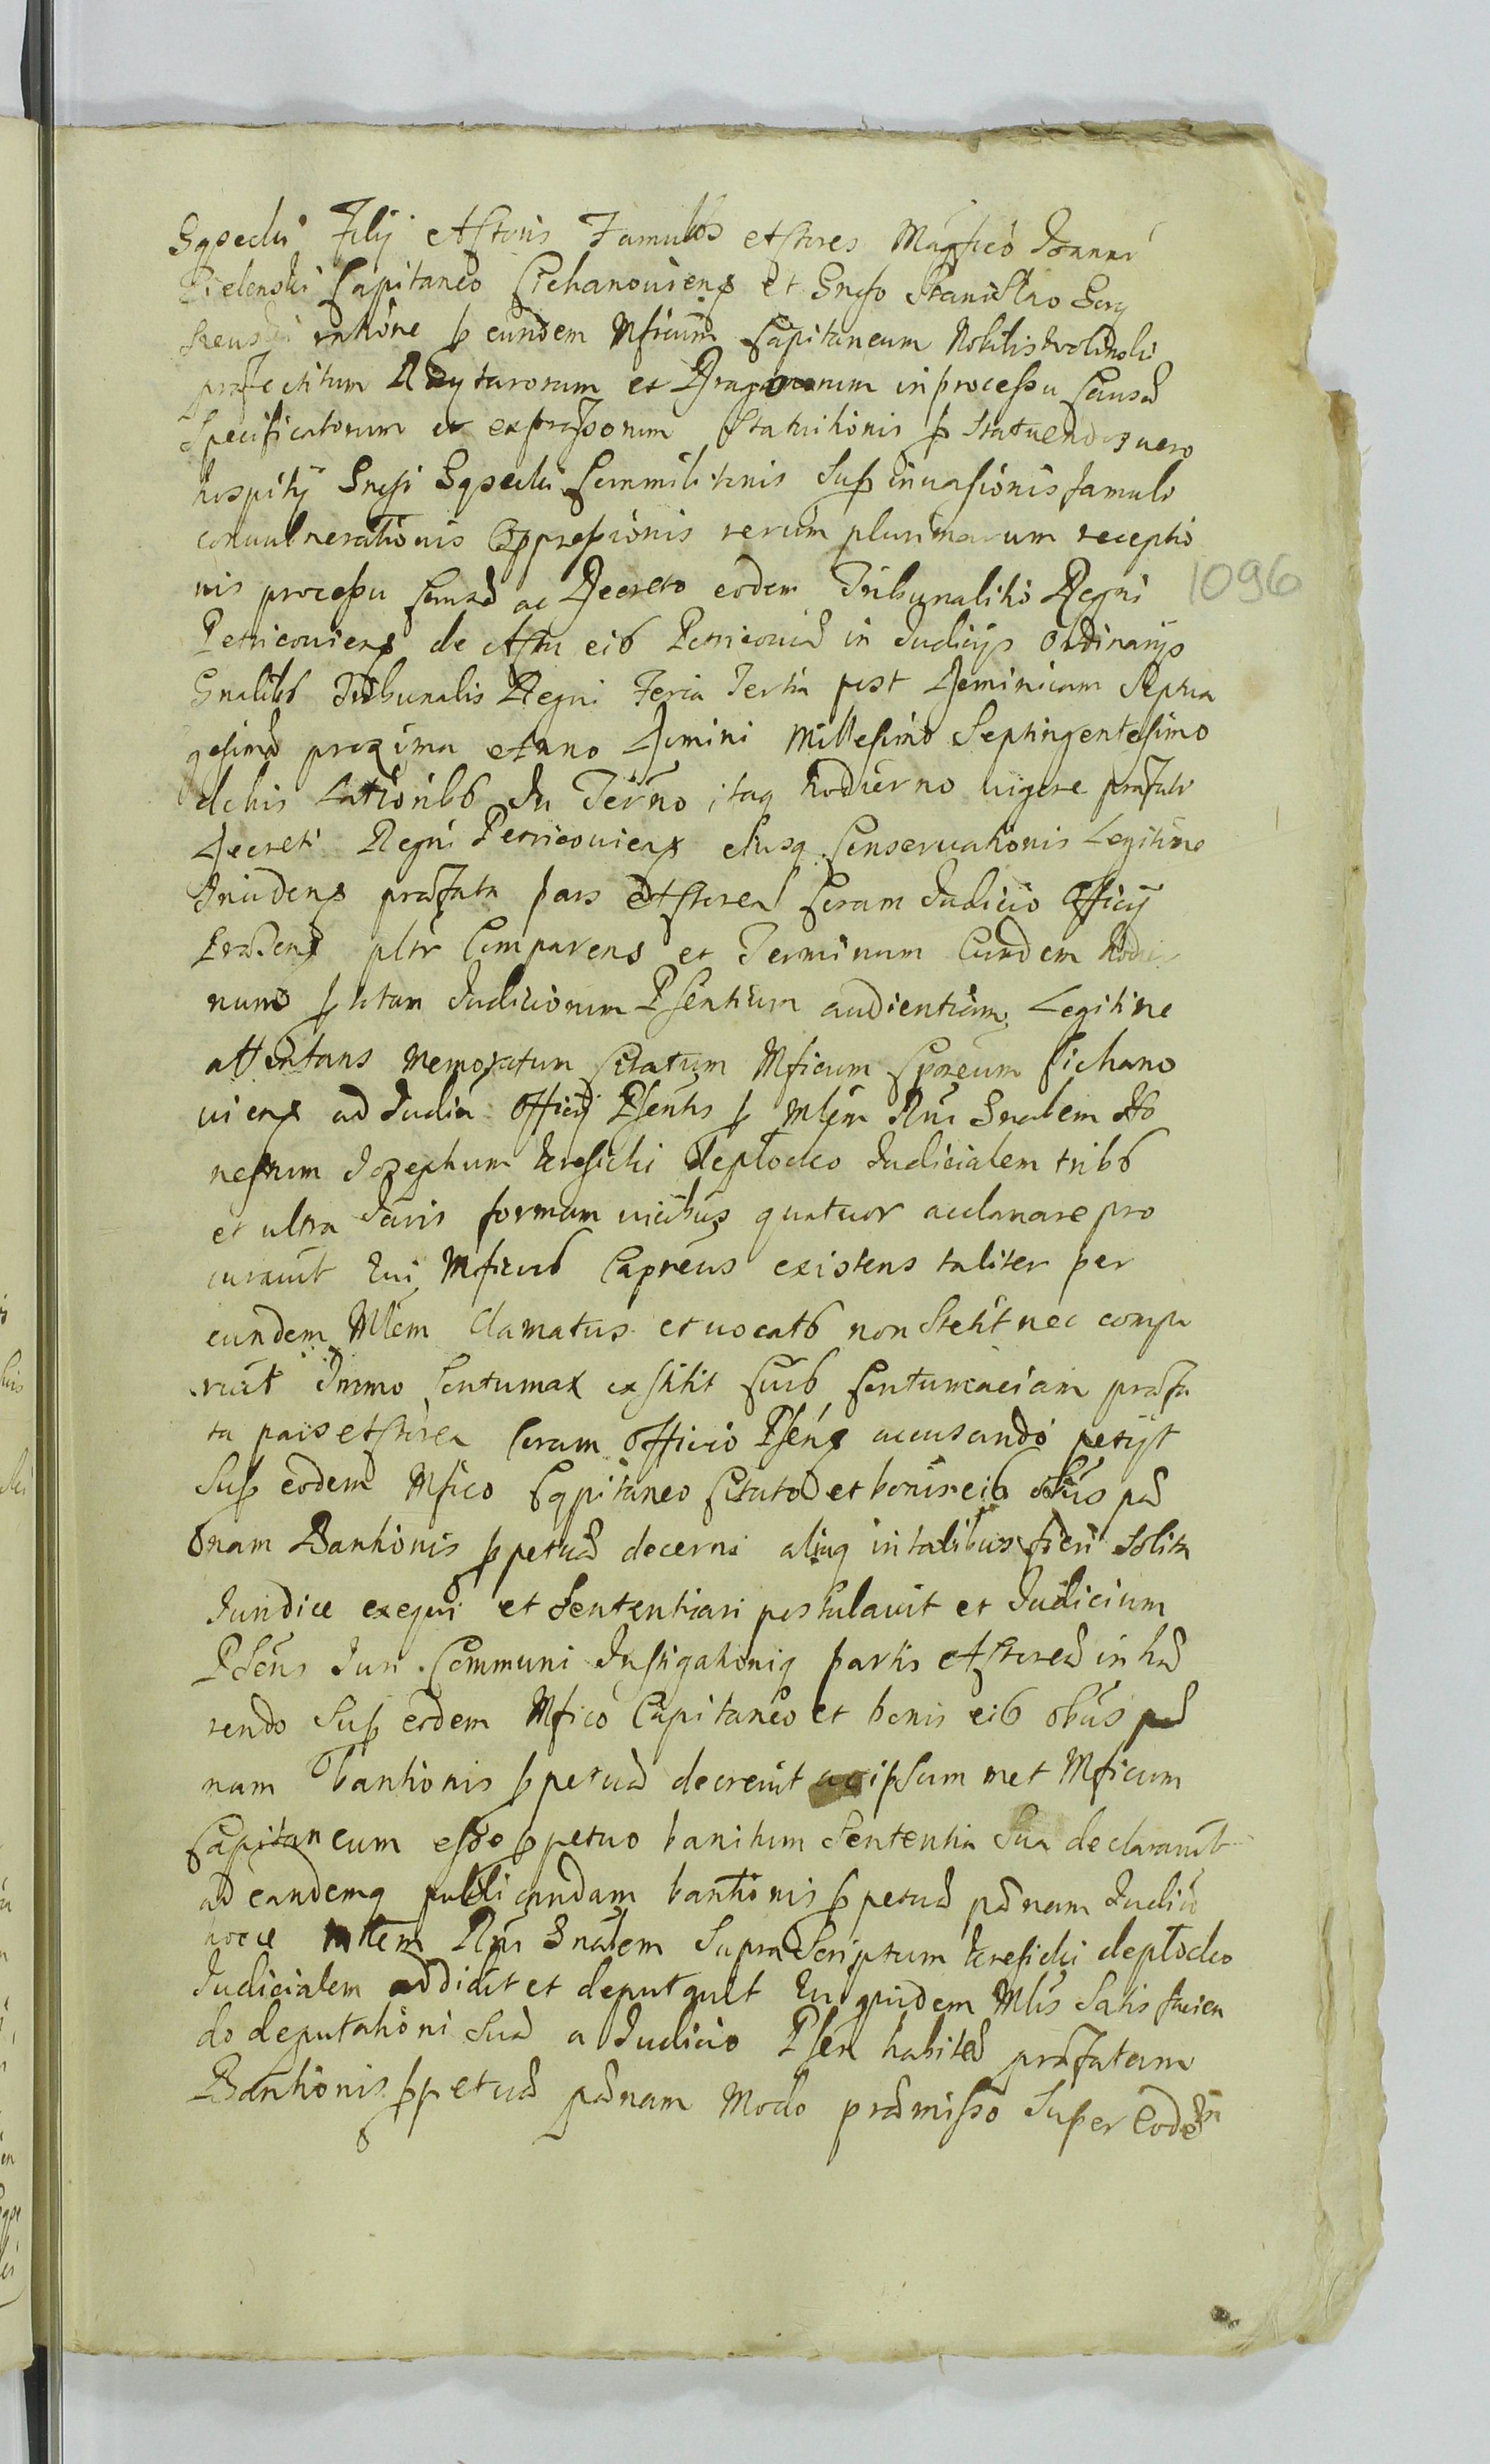 Sqpedii Filij Actoris Famulos Actores Magfico Joanni
Zielenski Capitaneo Ciechanouiens et Gnoso Stanislao
ratione p eundem Mficum Capitaneum Nobilis Wolinski
præfectitum Raytarorum et Dragonorum in processu Causæ
Specificatorum et expressorum Statuitionis p Statuendos uero
hospitij Gnosi Sqpedii Commilitonis Sup inuasionis famuli
conuulnerationis Oppressionis rerum plurimarum receptio
nis processu Causæ ac Decreto eodem Tribunalitio Regni
1096
Petricouiens de Actu eiô Petricouiæ in Judicijs Ordinarijs
Gnalibô Tribunalis Regni Feria Tertia post Dominicam Septua
gesimæ proxima Anno Domini Millesimo Septingentesimo
de his latioribô In Terno itaq hodierno uigore præfati
Decreti Regni Petricouiens eiusq Conseruationis Legitime
Inciden præfata pars Actorea Coram Judicio Officij
Præsens pltr Comparens et Terminum Eundem hodier
num p totam Judiciorum Psentium audientiam Legitime
attentans Memoratum Citatum Mficum Cpneum Ciechano
uiens ad Judia Officij Psentis p Mlem Rni Gnalem Ho
nestum Josephum deplodeo Judicialem tribô
et ultra Juris formam uicibus quatuor acclamare pro
curauit Qui Mficus Capneus existens taliter per
eundem Mlem Clamatus et uocatô non Stetit nec compa
ruit Immo Contumax exstitit Cuiô Contumaciam præfa
ta pars Actorea Coram Officio Psens accusando petijt
Sup eodem Mfico Capitaneo Citato et bonis eiô obus pæ
nam Banitionis ppetuæ decerni aliaq in talibus fieri Solita
Juridice exequi et Sententiari postulauit et Judicium
Psens Juri Communi Instigationiq partis Actoreæ in hæ
rendo Sup eodem Mfico Capitaneo et bonis eiô obus pæ
nam banitionis ppetuæ decreuit ac ipsum met Mficum
Capitaneum esse ppetuo banitum Sententia Sua declarauit
ad eandemq publicandam banitionis ppetuæ pænam Judiciũ
hocce Mlem Rni Gnalem Supra Scriptum deplodeo
Judicialem addidit et deputauit Qui quidem Mlis Satis facien
do deputationi Suæ a Judicio Psen habitæ præfatam
Banitionis ppetuæ pænam Modo præmisso Super Eodem